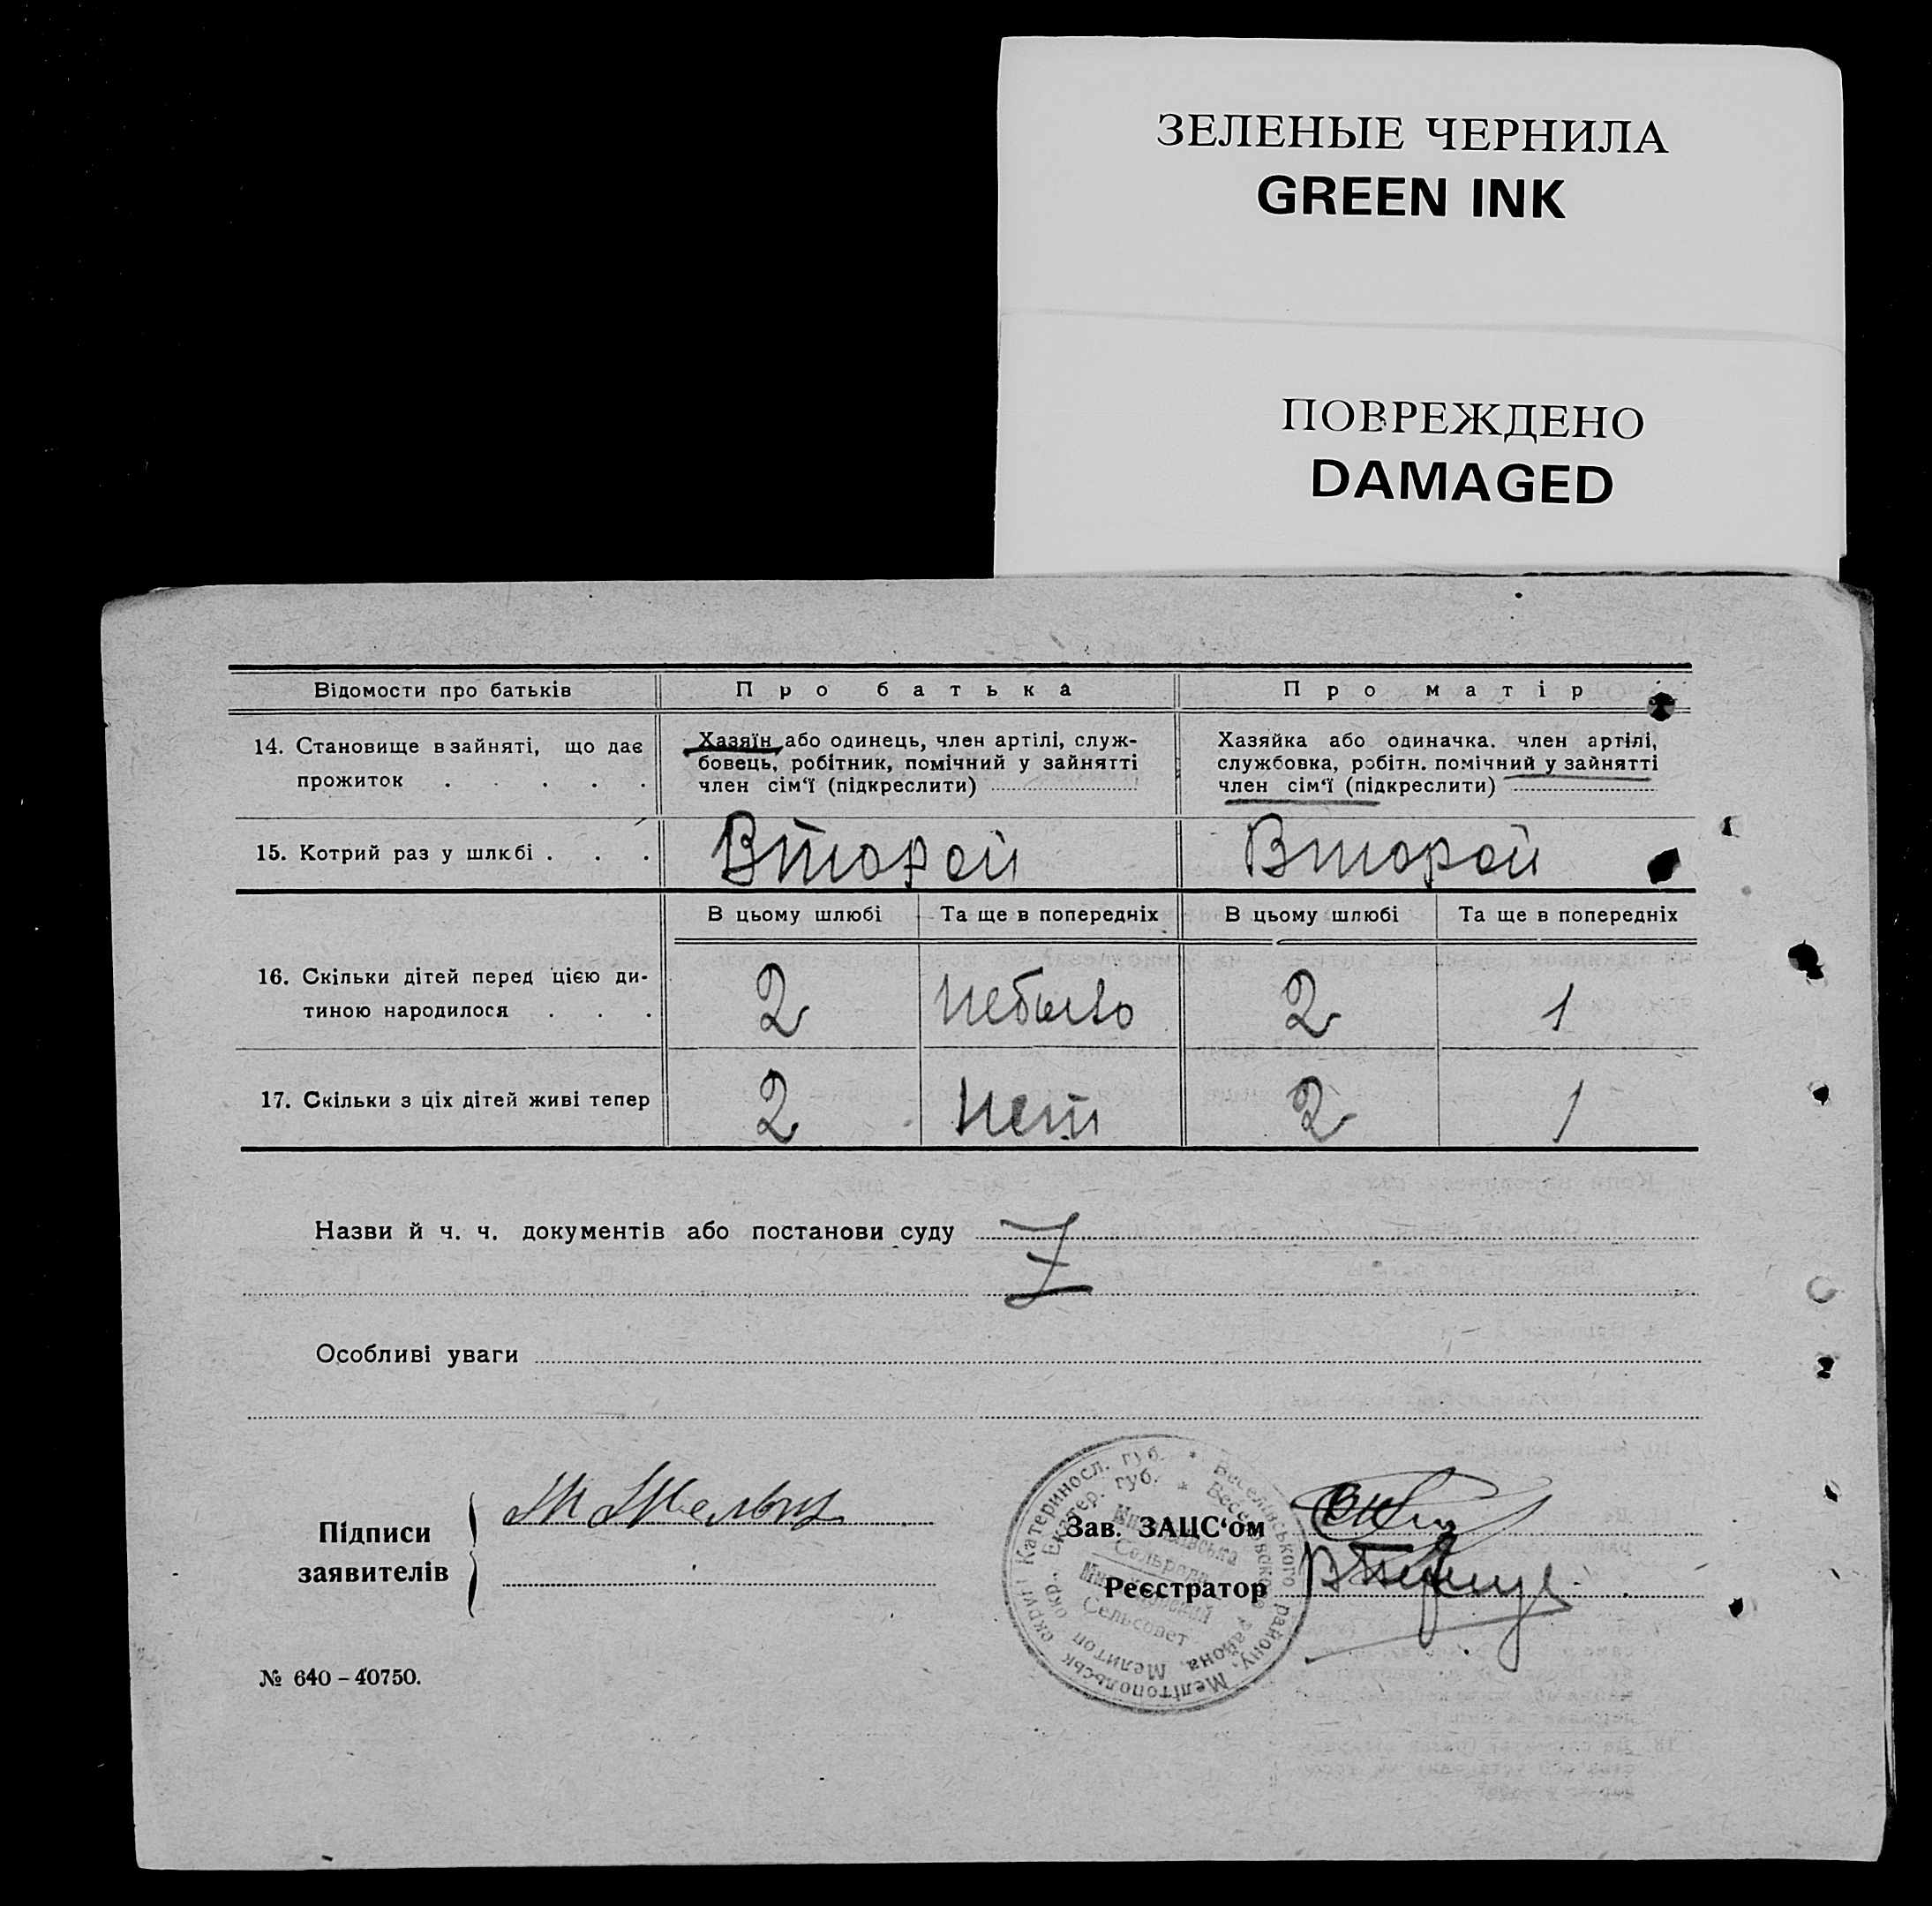 ЗЕЛЕНЫЕ ЧЕРНИЛА
GREEN INK
ПОВРЕЖДЕНО
DAMAGED
Відомости про батьків Про батька Про матір
14. Становище в зайняті, що дає прожиток . . . . .
Хазяїн або одинець, член артілі, служ-
бовець, робітник, помічний у зайнятті
член сім‘ї (підкреслити)
Хазяйка або одиначка. член артілі,
службовка, робітн. помічний у зайнятті
член сім‘ї (підкреслити)
15. Котрий раз у шлюбі . . . Второй Второй
В цьому шлюбі Та ще в попередніх В цьому шлюбі Та ще в попередніх
16. Скільки дітей перед цією ди-
тиною народилося . . . 2 небыло 2 1
17. Скільки з ціх дітей живі тепер 2 нет 2 1
Назви й ч. ч. документів або постанови суду
Особливі уваги
Підписи
заявителів
Зав. ЗАЦС‘ом
Реєстратор
Катеринослав. губ. * Веселівського району, Мелітопольськ округи
Екатер. губ. * Веселовского района, Мелитоп окр.
Сельрада
Сельсовет
№ 640 – 40750.